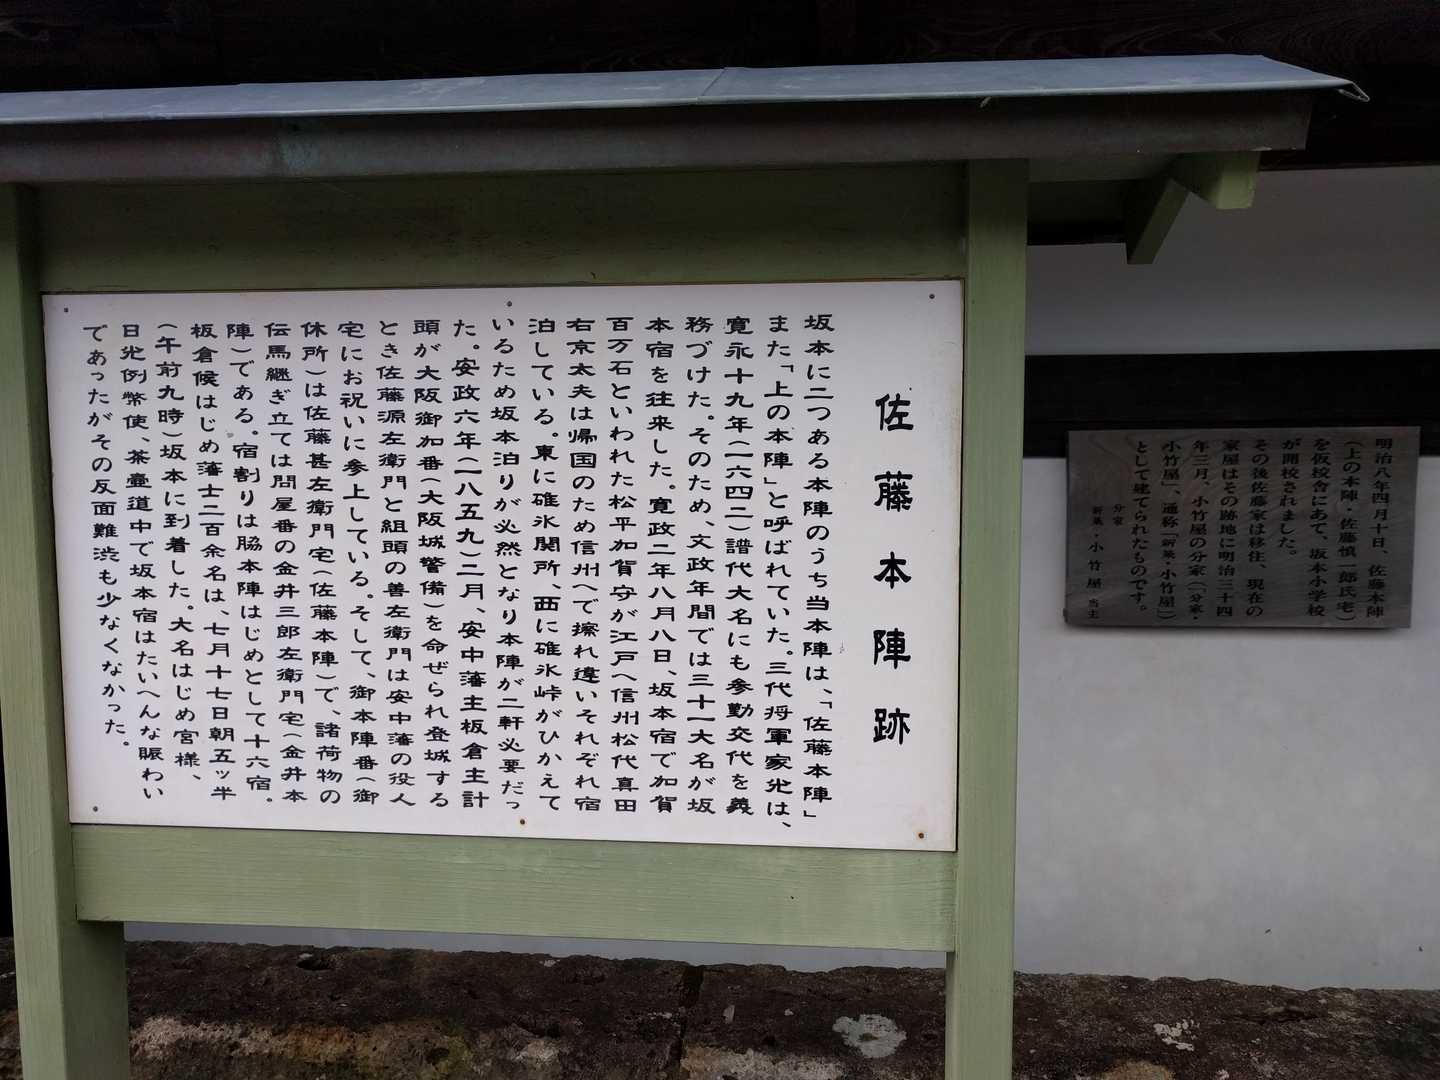 佐藤本陣跡
坂本に二つある本陣のうち当本陣は、「佐藤本陣」
また「上の本陣」と呼ばれていた。三代将軍家光は、
寛永十九年(一六四二)譜代大名にも参勤交代を義
務づけた。そのため、文政年間では三十一大名が坂
本宿を往来した。寛政二年八月八日、坂本宿で加賀
百万石といわれた松平加賀守が江戸へ信州松代真田
右京太夫は帰国のため信州へで擦れ違いそれぞれ宿
泊している。東に碓氷関所、西に碓氷峠がひかえて
いるため坂本泊りが必然となり本陣が二軒必要だっ
た。安政六年(一八五九)二月、安中藩主板倉主計
頭が大阪御加番(大阪城警備)を命ぜられ登城する
とき佐藤源左衛門と組頭の善左衛門は安中藩の役人
宅にお祝いに参上している。そして、御本陣番(御
休所)は佐藤甚左衛門宅(佐藤本陣)で、諸荷物の
伝馬継ぎ立ては問屋番の金井三郎左衛門宅(金井本
陣)である。宿割りは脇本陣はじめとして十六宿。
板倉候はじめ藩士二百余名は、七月十七日朝五ッ半
(午前九時)坂本に到着した。大名はじめ宮様、
日光例幣使、茶壷道中で坂本宿はたいへんな賑わい
であったがその反面難渋も少なくなかった。
明治八年四月十日、佐藤本陣
(上の本陣・佐藤慎一郎氏宅)
を仮校舎にあて、坂本小学校
が開校されました。
その後佐藤家は移住、現在の
家屋はその跡地に明治三十四
年三月、小竹屋の分家(「分家・
小竹屋」、通称「新築・小竹屋」)
として建てられたものです。
分家
新築・小竹屋 当主